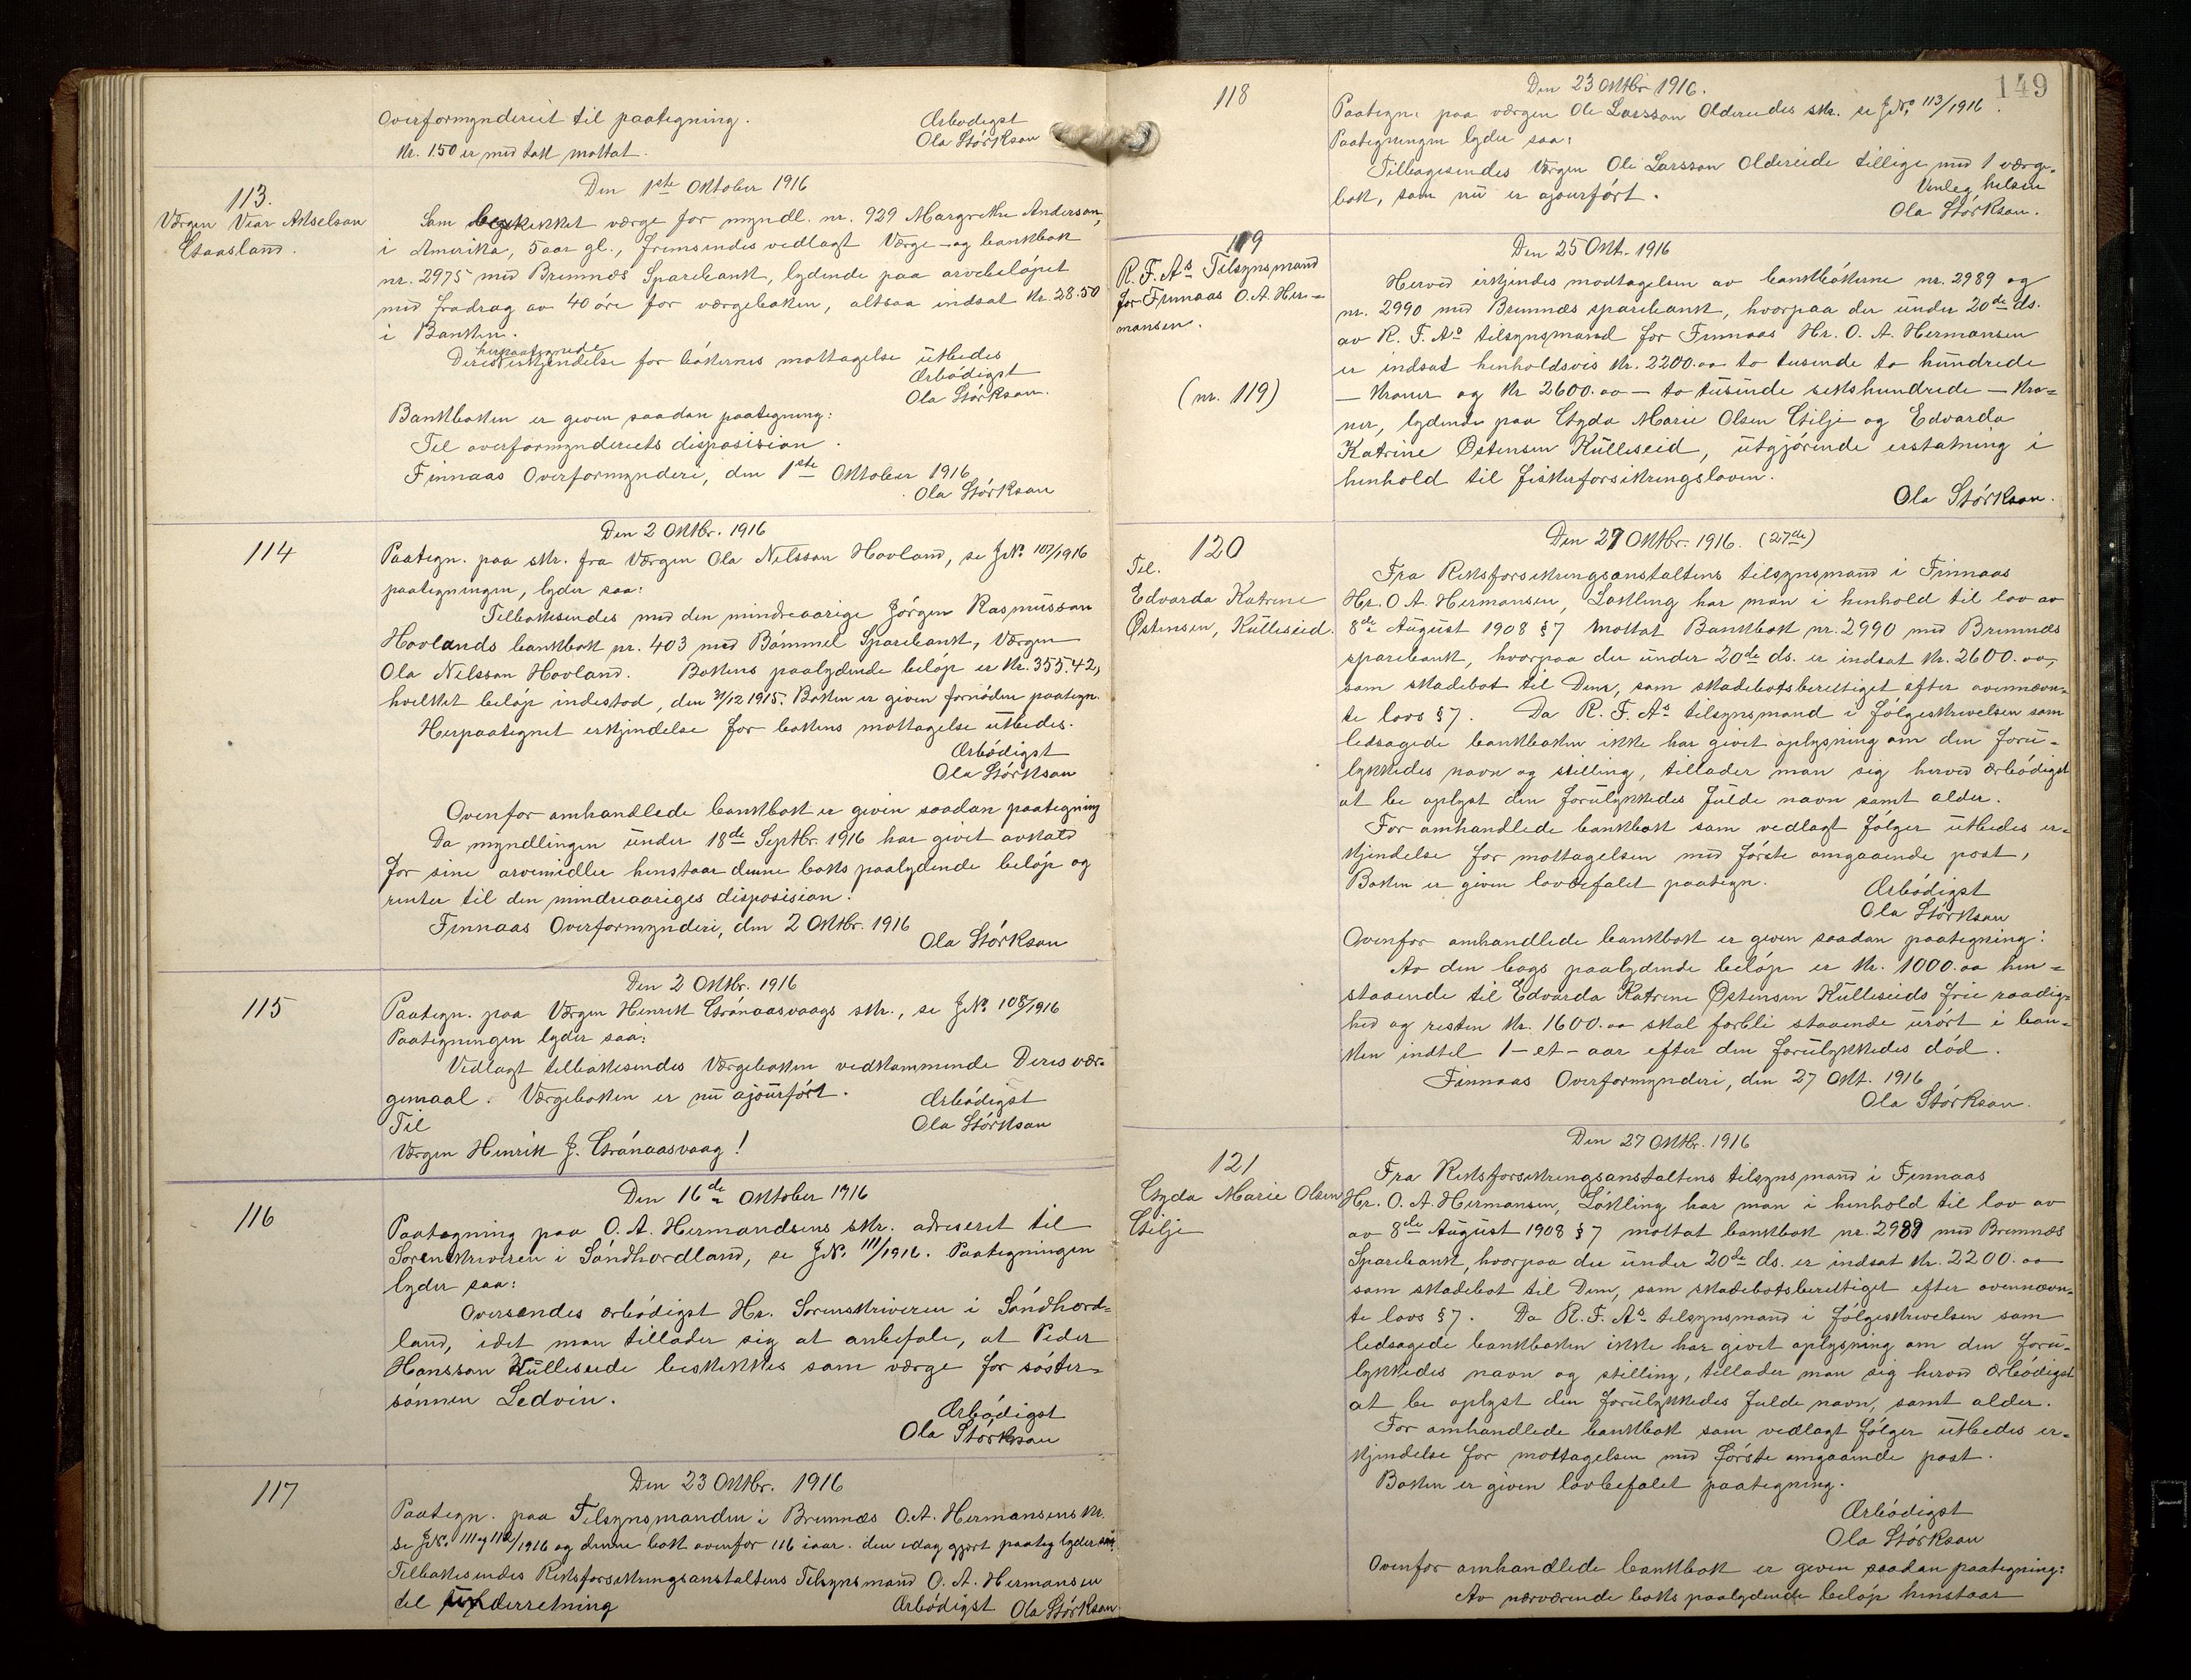 Overformynderiet til paategning.
Ærbødigst
Kr. 1.50 er med takk mottat.
Ola Størkson
Den 1ste Oktober 1916
113.
Værgen Viar Akselson
Gaasland.
Som beskikket værge for myndl. nr. 929 Margrethe Anderson,
i Amerika, 5 aar gl., fremsendes vedlagt Værge- og bankbok
nr. 2975 med Bremnæs Sparebank, lydende paa arvebeløpet
med fradrag av 40 øre for værgeboken, altsaa indsat Kr. 28.50
i Banken.
herpaategnede
Deres erkjendelse for bøkernes mottagelse ütbedes
Ærbødigst
Ola Størkson.
Bankboken er given saadan paategning:
Til overformynderiets disposision.
Finnaas Overformynderi, den 1ste Oktober 1916
Ola Størkson
Den 2 Oktbr. 1916
114
Paategn. paa skr. fra Værgen Ola Nilsson Hovland, se JNo. 107/1916
paategningen, lyder saa:
Tilbakesendes med den mindreaarige Jørgen Rasmüsson
Hovlands bankbok nr. 403 med Bømmel Sparebank, Værgen
Ola Nilsson Hovland. Bokens paalydende beløp er Kr. 355.42,
hvilket beløp indestod, den 31/12 1915. Boken er given fornøden paategn.
Herpaategnet erkjendelse for bokens mottagelse ütbedes.
Ærbødigst
Ola Størkson
Ovenfor omhandlede bankbok er given saadan paategning
Da myndlingen ünder 18de Septbr. 1916 har givet avkald
for sine arvemidler henstaar denne boks paalydende beløp og
renter til den mindreaariges disposision.
Finnaas Overformynderi, den 2 Oktbr. 1916
Ola Størkson
Den 2 Oktbr. 1916
115
Paategn. paa Værgen Henrik Grønaasvaags skr., se JNo. 108/1916
Paategningen lyder saa:
Vedlagt tilbakesendes Værgeboken vedkommende Deres vær-
gemaal. Værgeboken er nü ajoürført.
Ærbødigst
Til
Ola Størkson
Værgen Henrik J. Grønaasvaag!
Den 16de Oktober 1916
116
Paategning paa O. A. Hermandsens skr. adreseret til
Sorenskriveren i Søndhordland, se JNo. 111/1916. Paategningen
lyder saa:
Oversendes ærbødigst Hr. Sorenskriveren i Søndhord-
land, idet man tillader sig at anbefale, at Peder
Hansson Külleseide beskikkes som værge for søster-
sønnen Ledvin.
Ærbødigst
Ola Størkson
Den 23 Oktbr. 1916
117
Paategn. paa Tilsynsmanden i Bremnæs O.A. Hermansens skr.
se JNo. 111 og 112/1916 og denne bok ovenfor 116 iaar. den idag gjort paateg lyder saa:
Tilbakesendes Riksforsikringsanstaltens Tilsynsmand O. A. Hermansen
til ünderretning
Ærbødigst Ola Størkson
149
Den 23 Oktbr 1916.
118
Paategn. paa værgen Ole Larsson Oldereides skr. se JNo. 113/1916.
Paategningen lyder saa:
Tilbagesendes Værgen Ole Larsson Oldereide tillige med 1 værge-
bok, som nü er ajourført.
Venleg helsen
Ola Størkson.
Den 25 Okt. 1916
119
R. F. As Tilsynsmand
for Finnaas O. A. Her-
mansen.
(nr. 119)
Herved erkjendes modtagelsen av bankbøkerne nr. 2989 og
nr. 2990 med Bremnæs sparebank, hvorpaa der ünder 20de ds.
av R. F. As tilsynsmand for Finnaas Hr. O. A. Hermansen
er indsat henholdsvis Kr. 2200.oo to tusende to hündrede
— Kroner og Kr 2600.oo — to tüsinde sekshundrede — Kro-
ner, lydende paa Gyda Marie Olsen Gilje og Edvarda
Katrine Østensen Külleseid, ütgjørende erstatning i
henhold til fiskerforsikringsloven.
Ola Størkson.
Den 27 Oktbr. 1916. (27de)
120
Til.
Edvarda Katrine
Østensen, Külleseid.
Fra Riksforsikringsanstaltens tilsynsmand i Finnaas
Hr. O A. Hermansen, Løkling har man i henhold til lov av
8de August 1908 § 7 mottat Bankbok nr. 2990 med Bremnæs
sparebank, hvorpaa der ünder 20de ds. er indsat Kr. 2600.oo,
som skadebot til Dem, som skadebotsberettiget efter ovennævn-
te lovs § 7. Da R. F. As tilsynsmand i følgeskrivelsen som
ledsagede bankboken ikke har givet oplysning om den forü-
lykkedes navn og stilling, tillader man sig herved ærbødigst
at be oplyst den forülykkedes fülde navn samt alder.
For omhandlede bankbok som vedlagt følger ütbedes er-
kjendelse for mottagelsen med første omgaaende post,
Boken er given lovbefalet paategn.
Ærbødigst
Ola Størkson
Ovenfor omhandlede bankbok er given saadan paategning:
Av den bogs paalydende beløp er Kr. 1000.oo hen-
staaende til Edvarda Katrine Østensen Külleseids frie raadig-
hed og resten Kr. 1600.oo skal forbli staaende ürørt i ban-
ken indtil 1 - et - aar efter den forülykkedes død.
Finnaas Overformynderi, den 27 Okt. 1916
Ola Størkson.
Den 27 Oktbr. 1916
121
Gyda Marie Olsen
Gilje
Fra Riksforsikringsanstaltens tilsynsmand i Finnaas
Hr. O. A. Hermansen, Løkling har man i henhold til lov av
av 8de August 1908 § 7 mottat bankbok nr. 2989 med Bremnæs
Sparebank, hvorpaa der ünder 20de ds. er indsat Kr. 2200.oo
som skadebot til Dem, som skadebotsberettiget efter ovennævn-
te lovs § 7. Da R. F. As tilsynsmand i følgeskrivelsen som
ledsagede bankboken ikke har givet oplysning om den forü-
lykkedes navn og stilling, tillader man sig herved ærbødigst
at be oplyst den forülykkedes fulde navn, samt alder.
For omhandlede bankbok som vedlagt følger ütbedes er-
kjendelse for mottagelsen med første omgaaende post.
Boken er given lovbefalet paategning.
Ærbødigst
Ola Størkson
Ovenfor omhandlede bankbok er given saadan paategning:
Av nærværende boks paalydende beløp henstaar